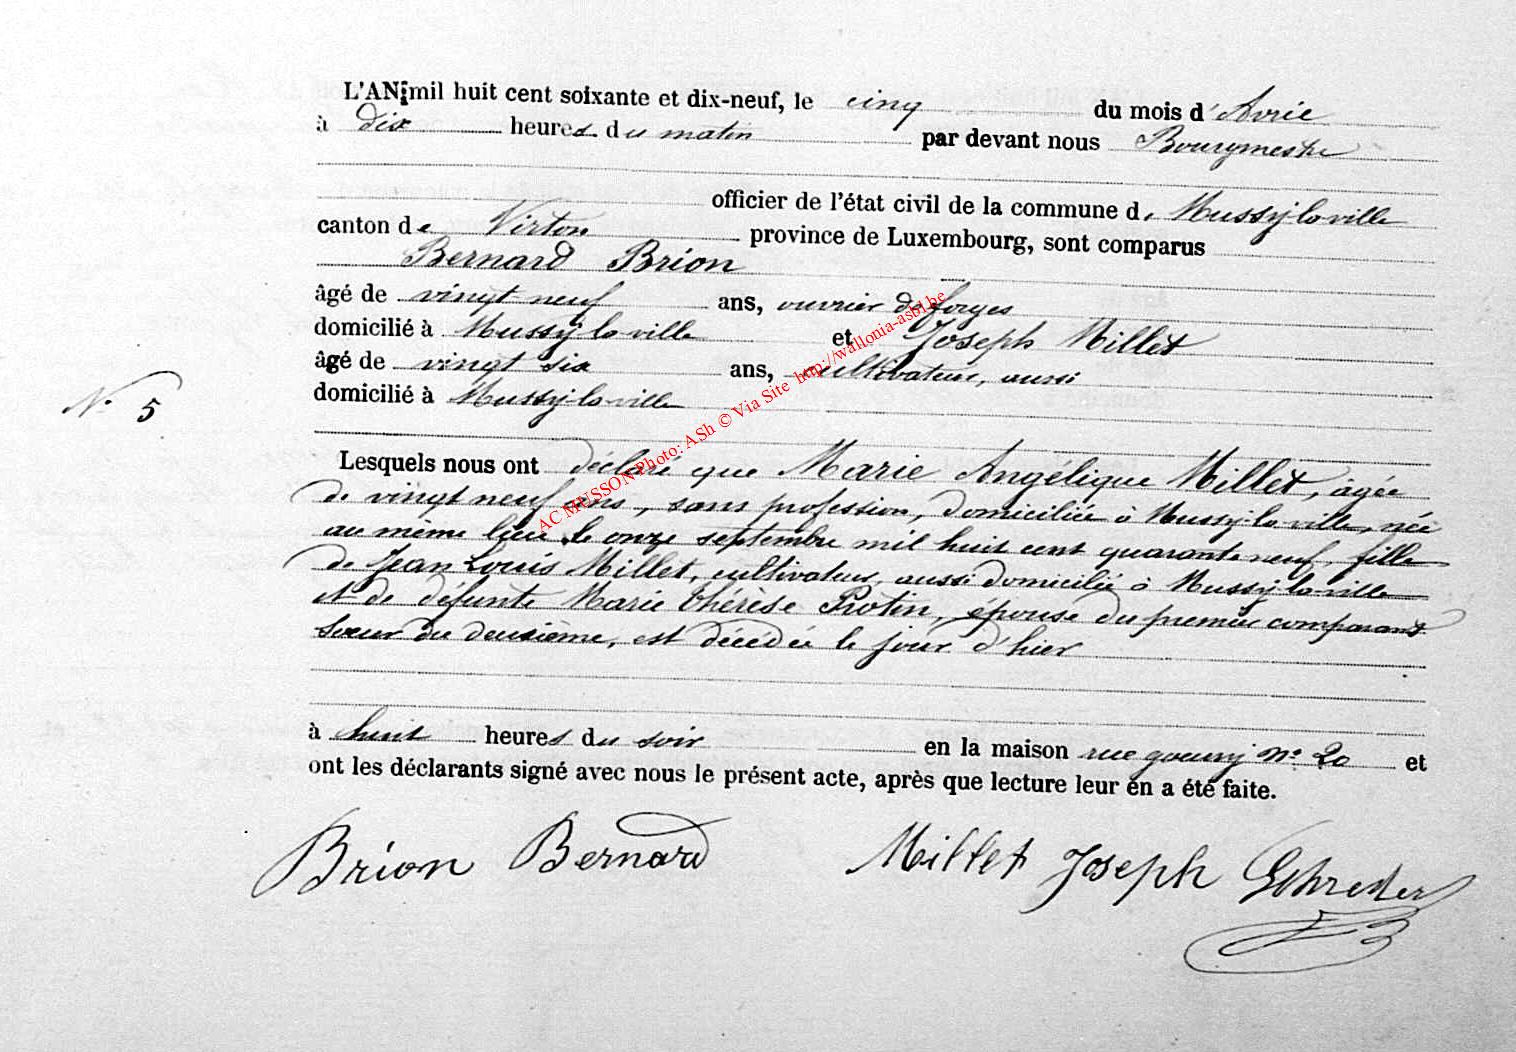 L'AN mil huit cent soixante et dix-neuf, le cinq du mois d'Avril
à dix heures du matin par devant nous Bourgmestre
officier de l'état civil de la commune de Mussy-la-ville
canton de Virton province de Luxembourg, sont comparus
Bernard Brion
âgé de vingt neuf ans, ouvrier de forges
domicilié à Mussy-la-ville et Joseph Millet
âgé de vingt six ans, cultivateur, aussi
domicilié à Mussy-la-ville
N° 5
Lesquels nous ont déclaré que Marie Angélique Millet, âgée
de vingt neuf ans, sans profession, domiciliée à Mussy-la-ville, née
au même lieu le onze septembre mil huit cent quarante neuf, fille
de Jean Louis Millet, cultivateur, aussi domicilié à Mussy-la-ville
et de défunte Marie Thérèse Protin, épouse du premier comparant
sœur du deuxième, est décédée le jour d'hier
à huit heures du soir en la maison rue goeury n° 20 et
ont les déclarants signé avec nous le présent acte, après que lecture leur en a été faite.
Brion Bernard Millet Joseph
AC MUSSON Photo: ASh © Via Site http://wallonia-asbl.be